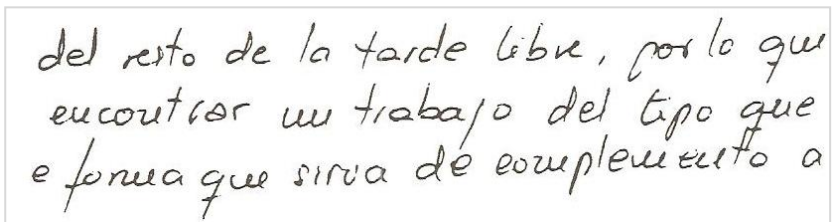 del resto de la tarde libre, por lo que
encontrar un trabajo del tipo que
e forma que sirva de complemento a